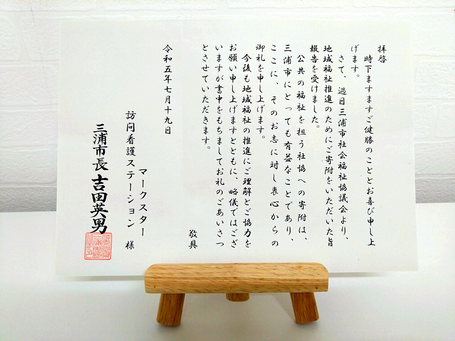 拝啓
時下ますますご健勝のこととお喜び申し上
げます。
さて、過日三浦市社会福祉協議会より、
地域福祉推進のためにご寄附をいただいた旨
報告を受けました。
公共の福祉を担う社協への寄附は、
三浦市にとっても有益なことであり、
ここに、そのお志に対し衷心からの
御礼を申し上げます。
今後も地域福祉の推進にご理解とご協力を
お願い申し上げますとともに、略儀ではござ
いますが書中をもちましてお礼のごあいさつ
とさせていただきます。
敬具
令和五年七月十九日
マークスター
訪問看護ステーション 様
三浦市長 吉田英男